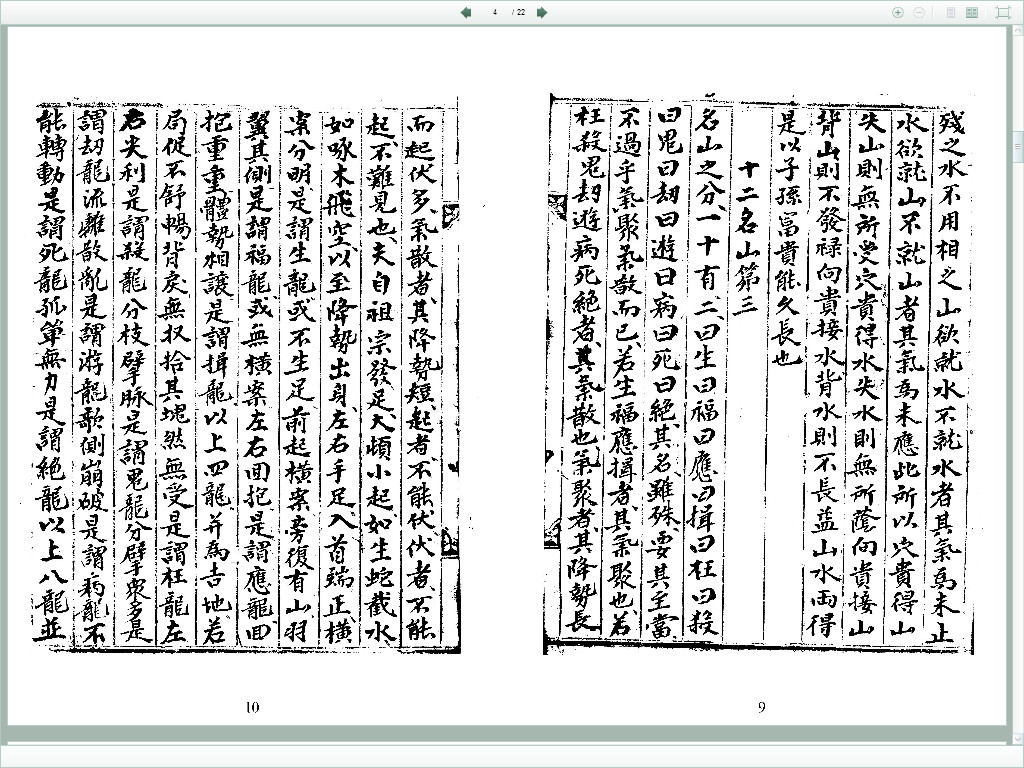 4 / 22
殘之水不用相之山欲就水不就水者其氣為未止
水欲就山不就山者其氣為未應此所以穴貴得山
失山則無所受穴貴得水失水則無所蔭向貴接山
背山則不發祿向貴接水背水則不長益山水兩得
是以子孫富貴能久長也
十二名山第三
名山之分一十有二曰生曰福曰應曰揖曰枉曰殺
曰鬼曰刼曰遊曰病曰死曰絕其名雖殊要其至當
不過乎氣聚氣散而已若生福應揖者其氣聚也若
枉殺鬼刼遊病死絕者其氣散也氣聚者其降勢長
而起伏多氣散者其降勢短起者不能伏伏者不能
起不難見也夫自祖宗發足大頓小起如生蛇截水
如啄木飛空以至降勢出身左右手足入首端正橫
案分明是謂生龍或不生足前起橫案旁復有山羽
翼其側是謂福龍或無橫案左右回抱是謂應龍面
抱重重體勢相讓是謂揖龍以上四龍并為吉地若
局促不舒暢背戾無収拾其塊然無受是謂枉龍左
右尖利是謂殺龍分枝擘脈是謂鬼龍分擘衆多是
謂刼龍流離散亂是謂游龍欹側崩破是謂病龍不
能轉動是謂死龍孤單無力是謂絕龍以上八龍並
10
9